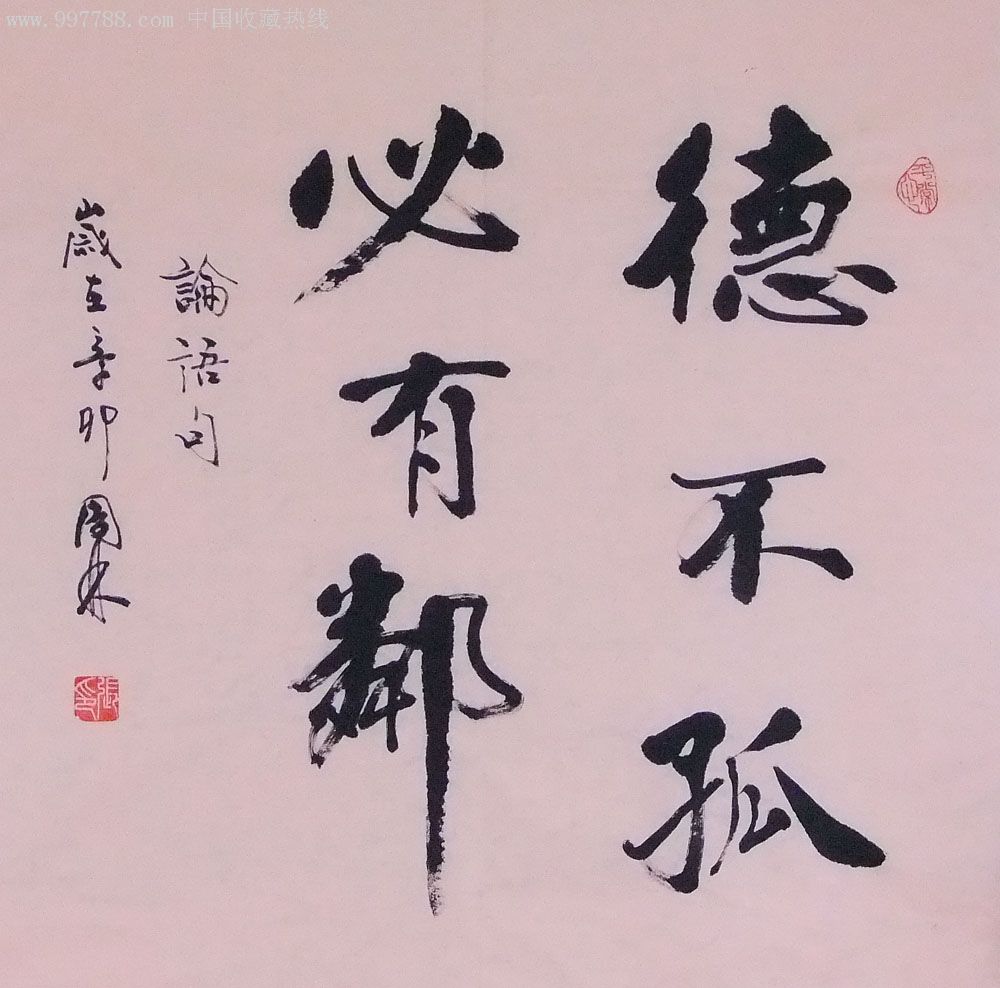 www.997788.com 中国收藏热线
德不孤
必有鄰
論語句
歲在辛卯周林